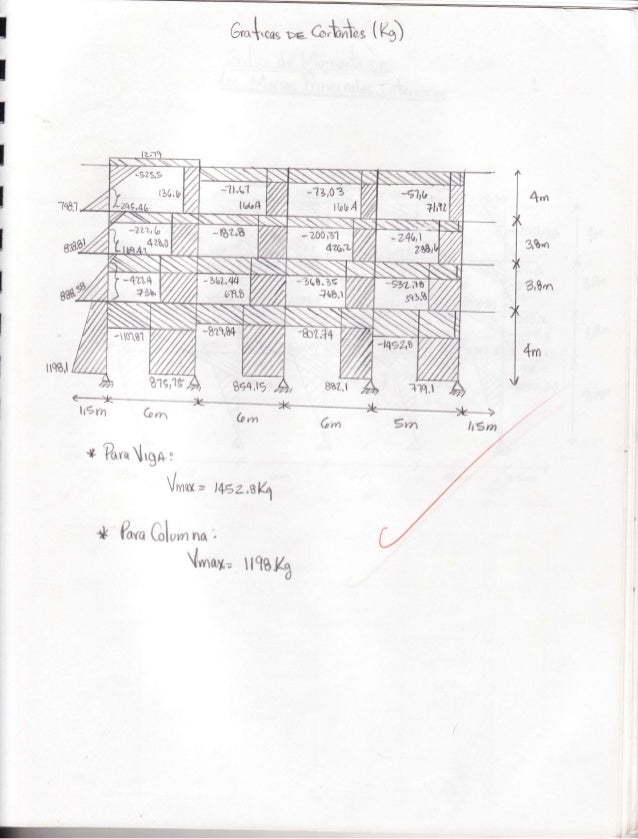 Graficas DE Cortantes (Kg)
12.79
-525,5
136.6
-71.67
166A
-73,03
166A
-57,6
71,92
4m
748.7
295.46
-222,6
428.0
-182.8
-200,37
426.2
-246,1
288,6
3,8m
-421.4
734
-362.44
679.8
-368.35
768.1
-532.78
393.8
3,8m
-1107,87
-829,84
-802.74
-1452,8
4m
1198,1
875,75
854,15
882,1
779.1
1,5m
6m
6m
6m
5m
1,5m
* Para VigA:
Vmax = 1452.8Kg
* Para Columna:
Vmax= 1198 Kg